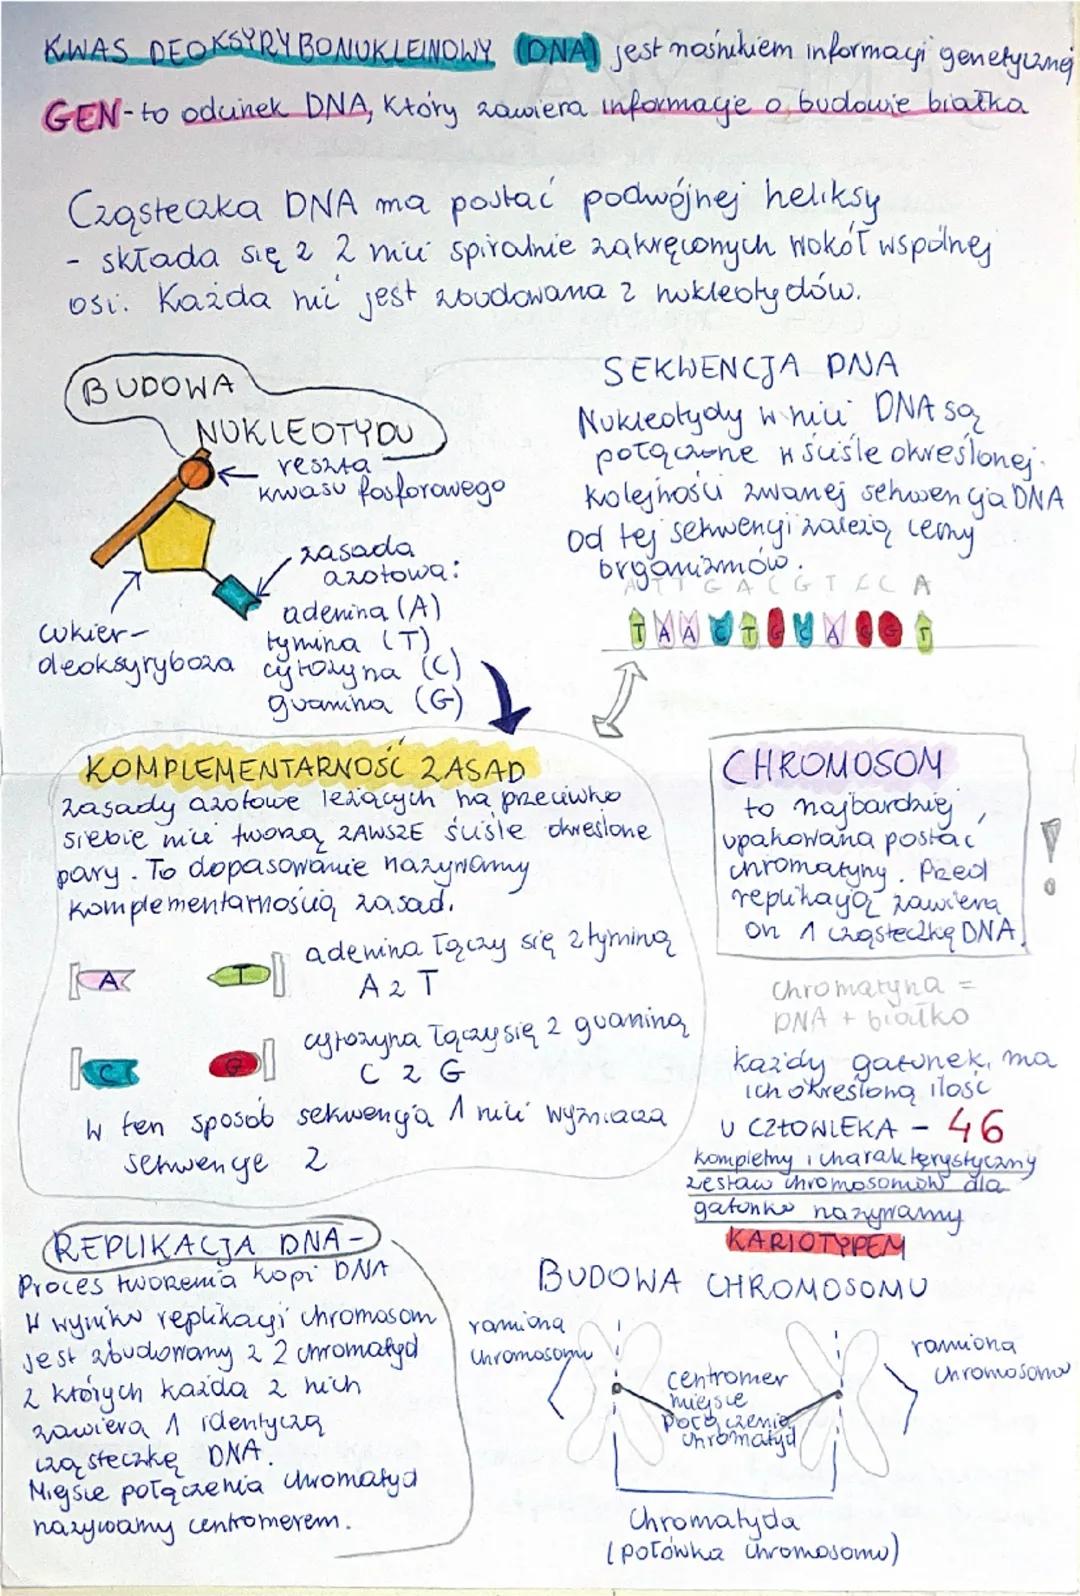 KWAS DEOKSYRYBONUKLEINOWY (DNA) jest nośnikiem informacji genetycznej
GEN - to odcinek DNA, który zawiera informacje o budowie białka
Cząsteczka DNA ma postać podwójnej heliksy
- składa się z 2 nici spiralnie zakręconych wokół wspólnej
osi. Każda nić jest zbudowana z nukleotydów.
BUDOWA
NUKLEOTYDU
reszta
kwasu fosforowego
zasada
azotowa:
adenina (A)
tymina (T)
cytozyna (C)
guanina (G)
cukier-
deoksyryboza
SEKWENCJA DNA
Nukleotydy w nici DNA są
połączone w ściśle określonej
kolejności zwanej sekwencją DNA
Od tej sekwencji zależą cechy
organizmów.
A T T G A C G T C C A
T A A C T G C A G G T
KOMPLEMENTARNOŚĆ ZASAD
zasady azotowe leżących na przeciwko
siebie nici tworzą ZAWSZE ściśle określone
pary. To dopasowanie nazywamy
komplementarnością zasad.
A T
adenina łączy się z tyminą
A z T
C G
cytozyna łączy się z guaniną
C z G
W ten sposób sekwencja 1 nici wyznacza
sekwencje 2
CHROMOSOM
to najbardziej
upakowana postać
chromatyny. Przed
replikacją zawiera
on 1 cząsteczkę DNA.
!
chromatyna =
DNA + białko
każdy gatunek ma
ich określoną ilość
U CZŁOWIEKA - 46
kompletny i charakterystyczny
zestaw chromosomów dla
gatunku nazywamy
KARIOTYPEM
REPLIKACJA DNA -
Proces tworzenia kopi DNA
W wyniku replikacji chromosom
jest zbudowany z 2 chromatyd
z których każda z nich
zawiera 1 identyczą
cząsteczkę DNA.
Miejsce połączenia chromatyd
nazywamy centromerem.
BUDOWA CHROMOSOMU
ramiona
chromosomu
centromer
miejsce
połączenia
chromatyd
ramiona
chromosomu
Chromatyda
(połówka chromosomu)